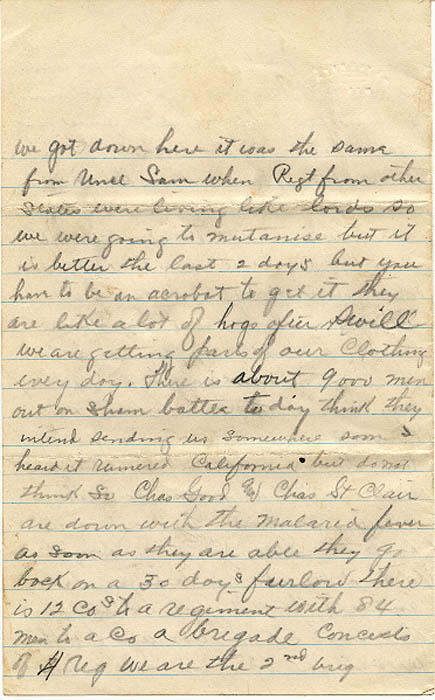 we got down here it was the same
from Uncl Sam when Regt from other
States were living like lords so
we were going to mutanise but it
is better the last 2 days but you
hav to be an acrobat to get it they
are like a lot of hogs after swill
we are getting parts of our Clothing
every day. There is about 9000 men
out on sham battle today think they
intend sending us somewhere soon I
heard it rumered California but do not
think So Chas Good and Chas St Clair
are down with the Malaria fever
as soon as they are able they go
back on a 30 days furlow there
is 12 Cos to a regiment with 84
men to a Co a brigade Concists
of 4 Reg we are the 2nd brig